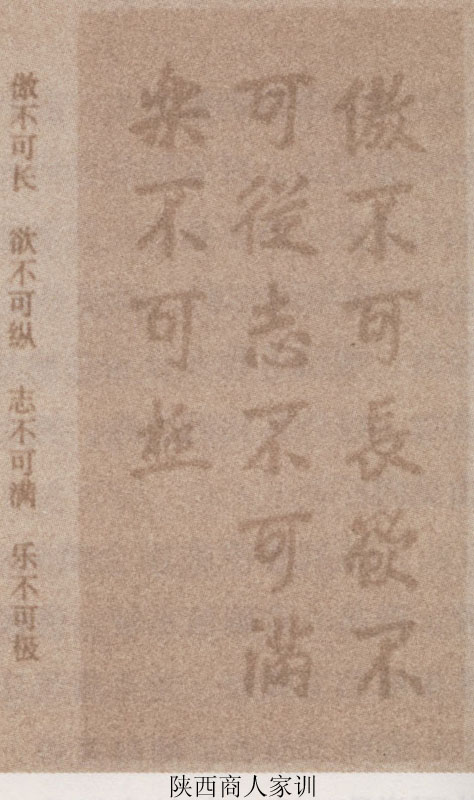 傲不可長欲不
可從志不可滿
樂不可極
傲不可长 欲不可纵 志不可满 乐不可极
陕西商人家训